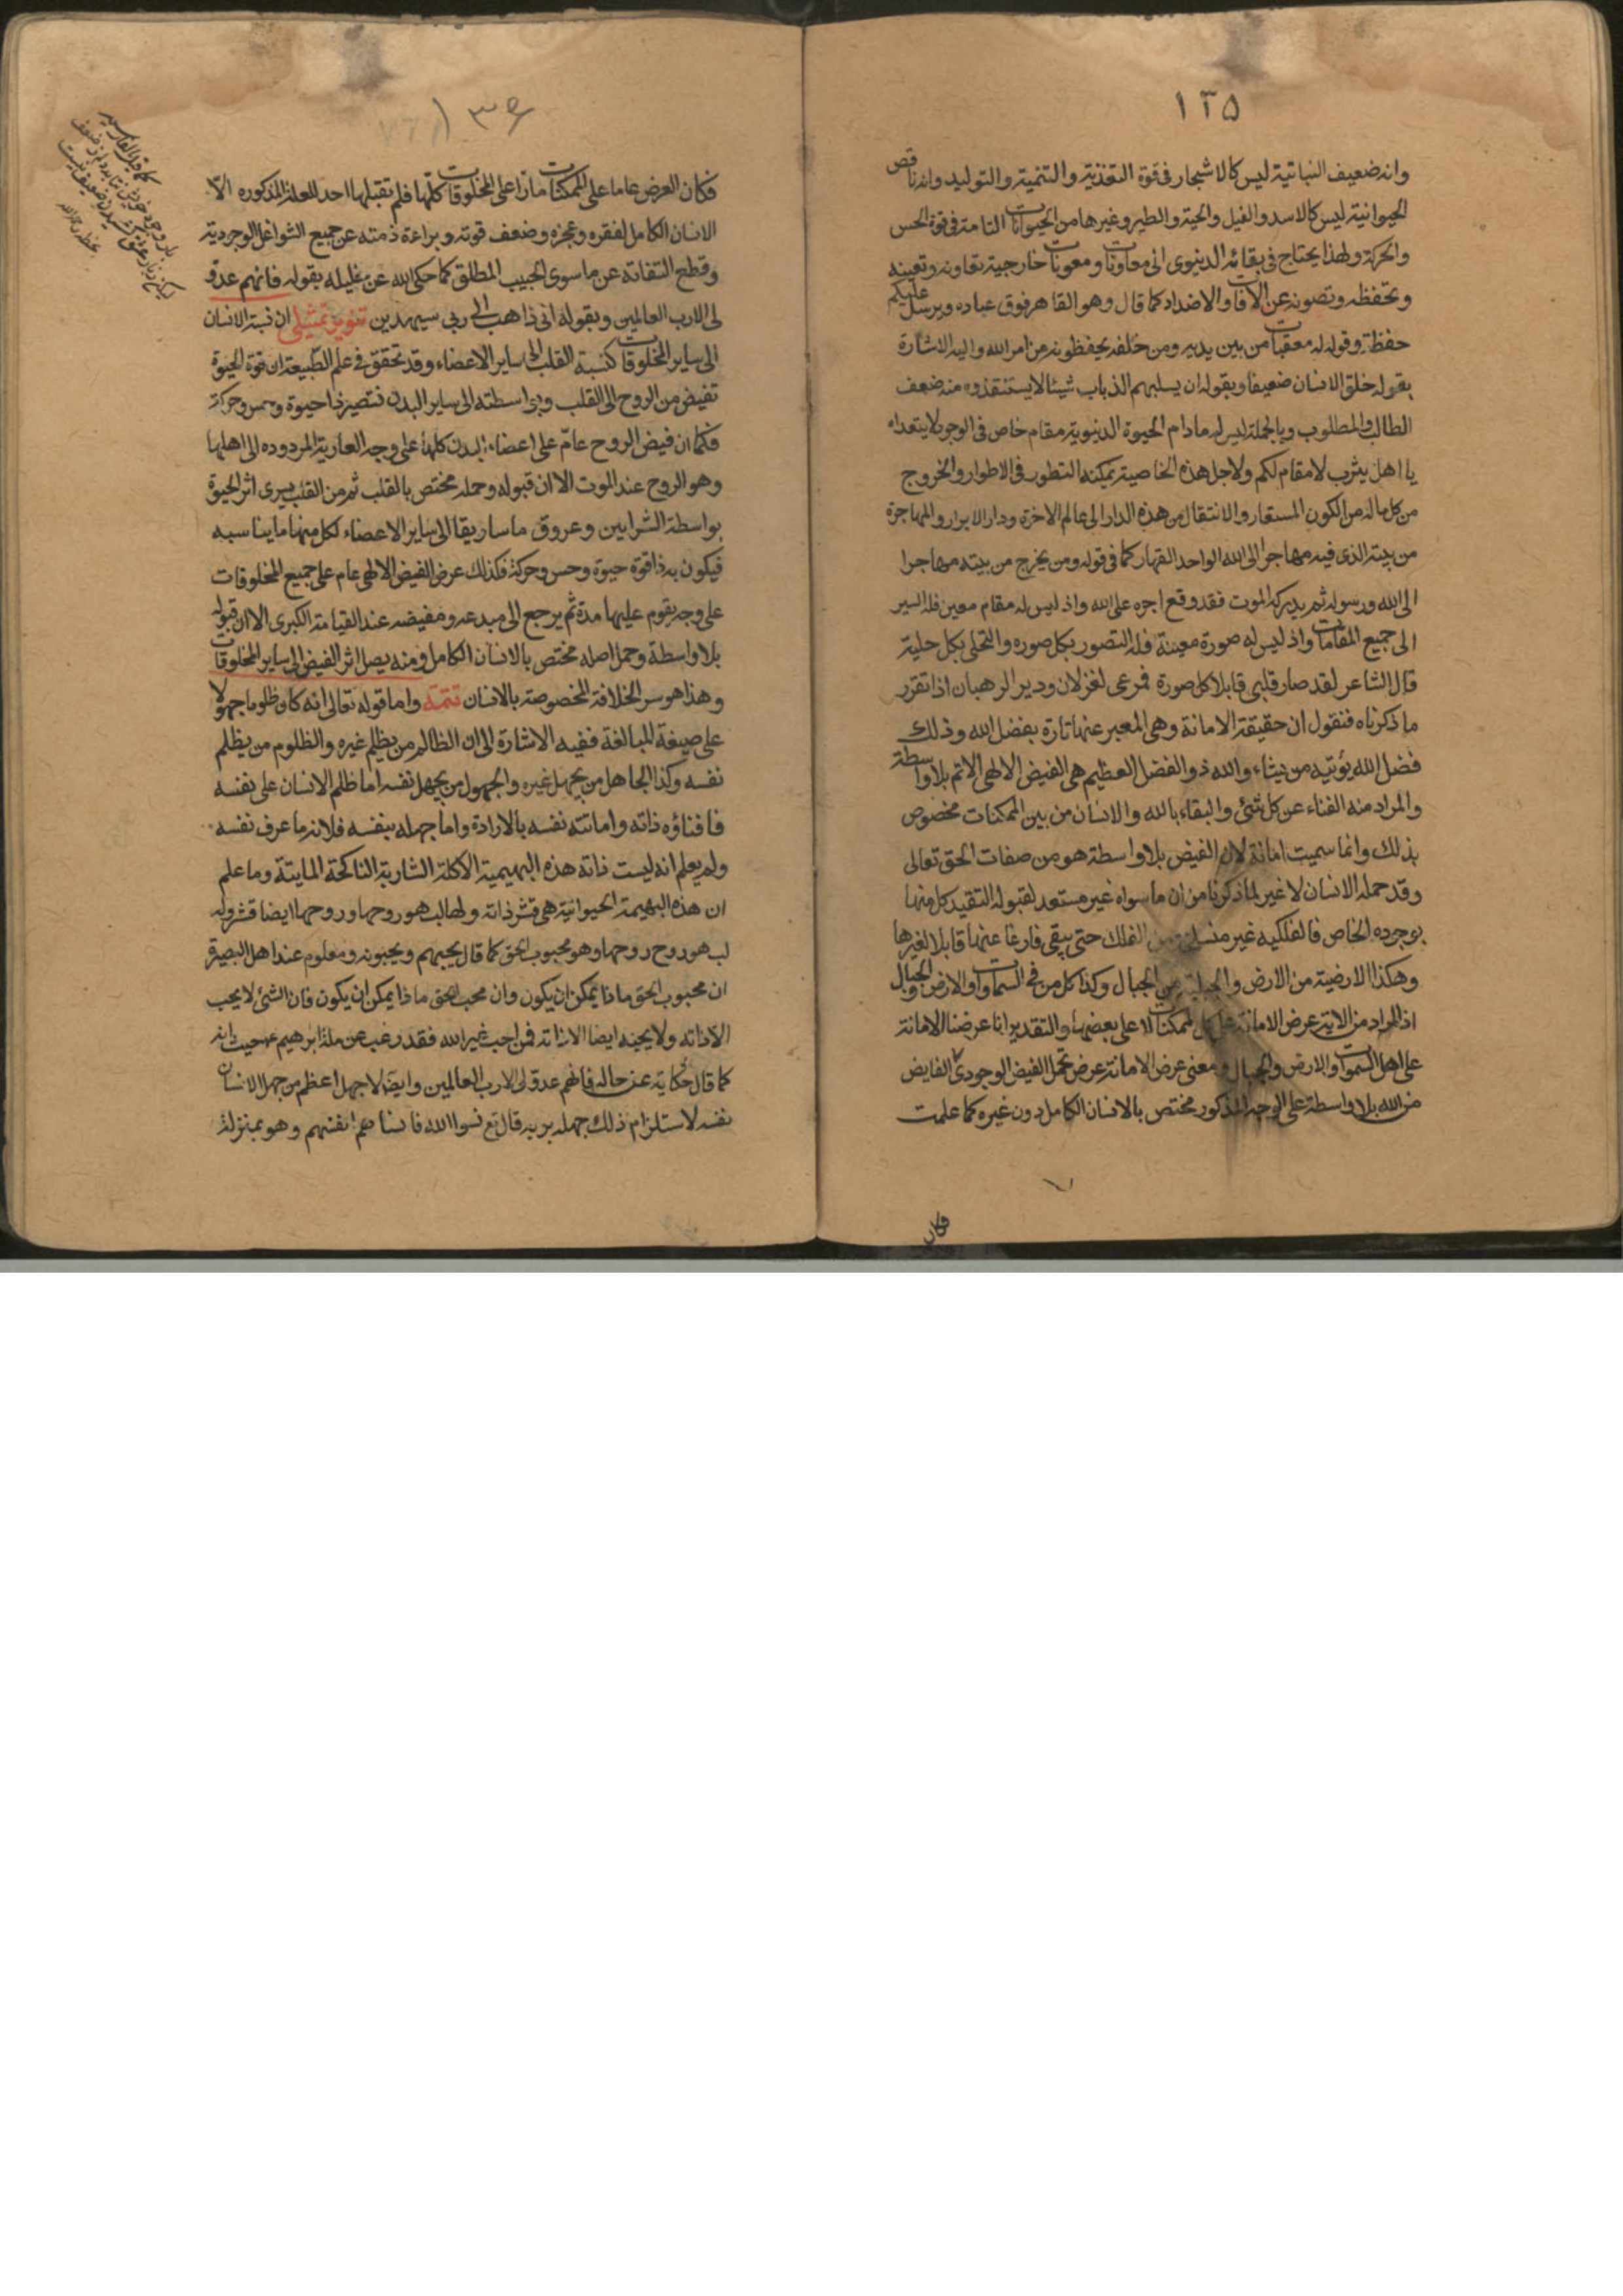 ١٣٥
وانه ضعيف النباتية ليس كالاشجار فى قوة التغذية والتنمية والتوليد وانه ناقص
الحيوانية ليس كالاسد والفيل والحية والطير وغيرها من الحيوانات التامة فى قوة الحس
والحركة ولهذا يحتاج فى بقائه الدنيوى الى معاونات ومعونات خارجية تعاونه وتعينه
وتحفظه وتصونه عن الآفات والاضداد كما قال وهو القاهر فوق عباده ويرسل عليكم
حفظة وقوله له معقبات من بين يديه ومن خلفه يحفظونه من امر الله واليه الاشارة
بقوله خلق الانسان ضعيفا وبقوله ان يسلبهم الذباب شيئا لا يستنقذوه منه ضعف
الطالب والمطلوب وبالجملة ليس له مادام الحيوة الدنيوية مقام خاص فى الوجود لا يتعداه
يا اهل يثرب لا مقام لكم ولاجل هذه الخاصية يمكنه التطور فى الاطوار والخروج
من كل ماله من الكون المستعار والانتقال من هذه الدار الى عالم الاخرة ودار الابرار والمهاجرة
من بيته الذى فيه مهاجرا الى الله الواحد القهار كما فى قوله ومن يخرج من بيته مهاجرا
الى الله ورسوله ثم يدركه الموت فقد وقع اجره على الله واذ ليس له مقام معين فله السير
الى جميع المقامات واذ ليس له صورة معينة فله التصور بكل صوره والتحلى بكل حلية
قال الشاعر لقد صار قلبى قابلا كل صورة فمرعى لغزلان ودير الرهبان اذا تقرر
ما ذكرناه فنقول ان حقيقة الامانة وهى المعبر عنها تارة بفضل الله وذلك
فضل الله يؤتيه من يشاء والله ذو الفضل العظيم هى الفيض الالهى الاتم بلا واسطة
والمراد منه الفناء عن كل شئ والبقاء بالله والانسان من بين الممكنات مخصوص
بذلك وانما سميت امانة لان الفيض بلا واسطة هو من صفات الحق تعالى
وقد حمله الانسان لا غير لما ذكرنا من ان ما سواه غير مستعد لقبوله لتقيد كل منها
بوجوده الخاص فالفلكيه غير منسلخ من الفلك حتى يبقى فارغا عنها قابلا لغيرها
وهكذا الارضية من الارض والجبلية من الجبال وكذا كل من فى السماوات والارض والجبال
اذ المراد من الاية عرض الامانة على كل الممكنات لا على بعضها والتقدير انا عرضنا الامانة
على اهل السموات والارض والجبال ومعنى عرض الامانة عرض تحمل الفيض الوجودى الفايض
من الله بلا واسطة على الوجه المذكور مختص بالانسان الكامل دون غيره كما علمت
فكان
١٣٦
فكان العرض عاما على الممكنات مارّا على المخلوقات كلّها فلم تقبلها احد للعلة المذكوره الاّ
الانسان الكامل لفقره وعجزه وضعف قوته وبراءة ذمته عن جميع الشواغل الوجودية
وقطع التفاته عن ما سوى الحبيب المطلق كما حكى الله عن خليله بقوله فانهم عدو
لى الا رب العالمين وبقوله انى ذاهب الى ربى سيهدين تنوير تمثيلى ان نسبة الانسان
الى ساير المخلوقات كنسبة القلب الى ساير الاعضاء وقد تحقق فى علم الطبيعة ان قوة الحيوة
تفيض من الروح الى القلب وبواسطته الى ساير البدن فتصير ذا حيوة وحس وحركة
فكما ان فيض الروح عامّ على اعضاء البدن كلها على وجه العارية المردوده الى اهلها
وهو الروح عند الموت الا ان قبوله وحمله مختص بالقلب ثم من القلب يسرى اثر الحيوة
بواسطة الشرايين وعروق ماساريقا الى ساير الاعضاء لكل منها ما يناسبه
فيكون به ذا قوة حيوة وحس وحركة فكذلك عرض الفيض الالهى عام على جميع المخلوقات
على وجه يقوم عليها مدة ثم يرجع الى مبدعه ومفيضه عند القيامة الكبرى الا ان قبوله
بلا واسطة وحمل اصله مختص بالانسان الكامل ومنه يصل اثر الفيض الى ساير المخلوقات
وهذا هو سر الخلافة المخصوصة بالانسان تتمة واما قوله تعالى انه كان ظلوما جهولا
على صيغة المبالغة ففيه الاشارة الى ان الظالم من يظلم غيره والظلوم من يظلم
نفسه وكذا الجاهل من يجهل غيره والجهول من يجهل نفسه اما ظلم الانسان على نفسه
فافناؤه ذاته واماتته نفسه بالارادة واما جهله بنفسه فلانه ما عرف نفسه
ولم يعلم انه ليست ذاته هذه البهيمية الاكلة الشاربة الناكحة المايتة وما علم
ان هذه البهيمة الحيوانية هى قشر ذاته ولها لب هو روحها وروحها ايضا قشر وله
لب هو روح روحها وهو محبوب الحق كما قال يحبهم ويحبونه ومعلوم عند اهل البصيرة
ان محبوب الحق ماذا يمكن ان يكون وان محب الحق ماذا يمكن ان يكون فان الشئ لا يحب
الا ذاته ولا يحبه ايضا الا ذاته فمن احب غير الله فقد رغب عن ملة ابرهيم حيث انه
كما قال حكاية عن حاله فانهم عدو لى الا رب العالمين وايضا لا جهل اعظم من جهل الانسان
نفسه لاستلزام ذلك جهله بربه قال تع نسوا الله فانساهم انفسهم وهو بمنزلة